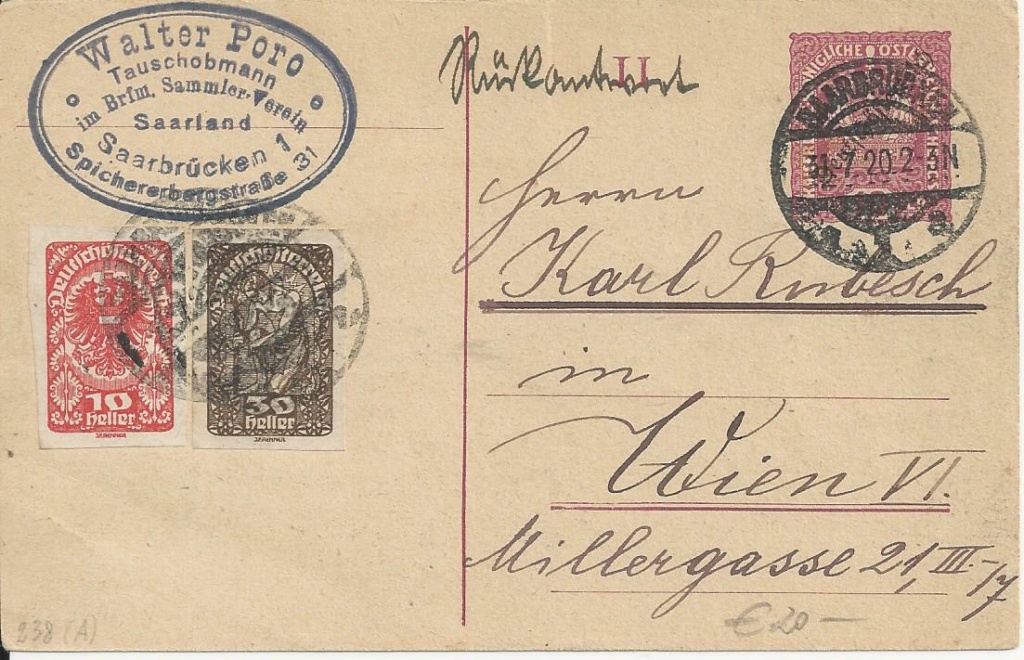 Walter Poro
Tauschobmann
im Brfm. Sammler-Verein
Saarland
Saarbrücken 1
Spichererbergstraße 31
Rückantwort
II
NIGLICHE ÖST
SAARBRÜCKEN
31.7.20.2-3N
a
Herrn
Karl Kubesch
in
Wien VI.
Millergasse 21, III.-/7
Deutschösterreich
10
heller
Deutschösterreich
30
heller
238 (A)
€ 20 —